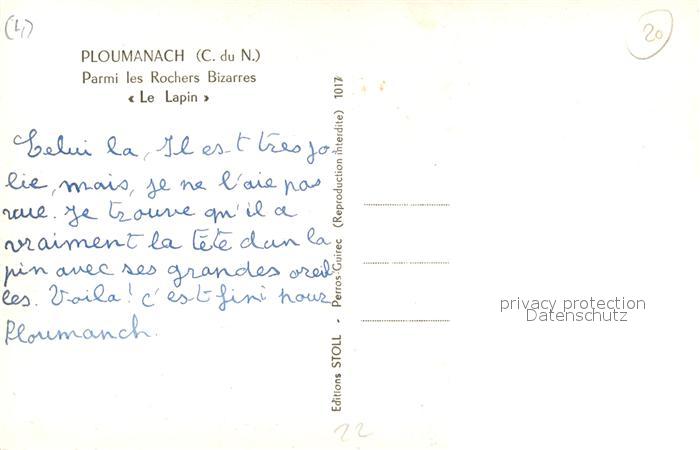 (4)
20
PLOUMANACH (C. du N.)
Parmi les Rochers Bizarres
« Le Lapin »
Celui la, Il est tres jo-
lie, mais, je ne l'aie pas
vue. Je trouve qu'il a
vraiment la tête d'un la
pin avec ses grandes oreil
les. Voila! c'est fini pour
Ploumanch.
Editions STOLL - Perros-Guirec (Reproduction Interdite) 1017
privacy protection
Datenschutz
22